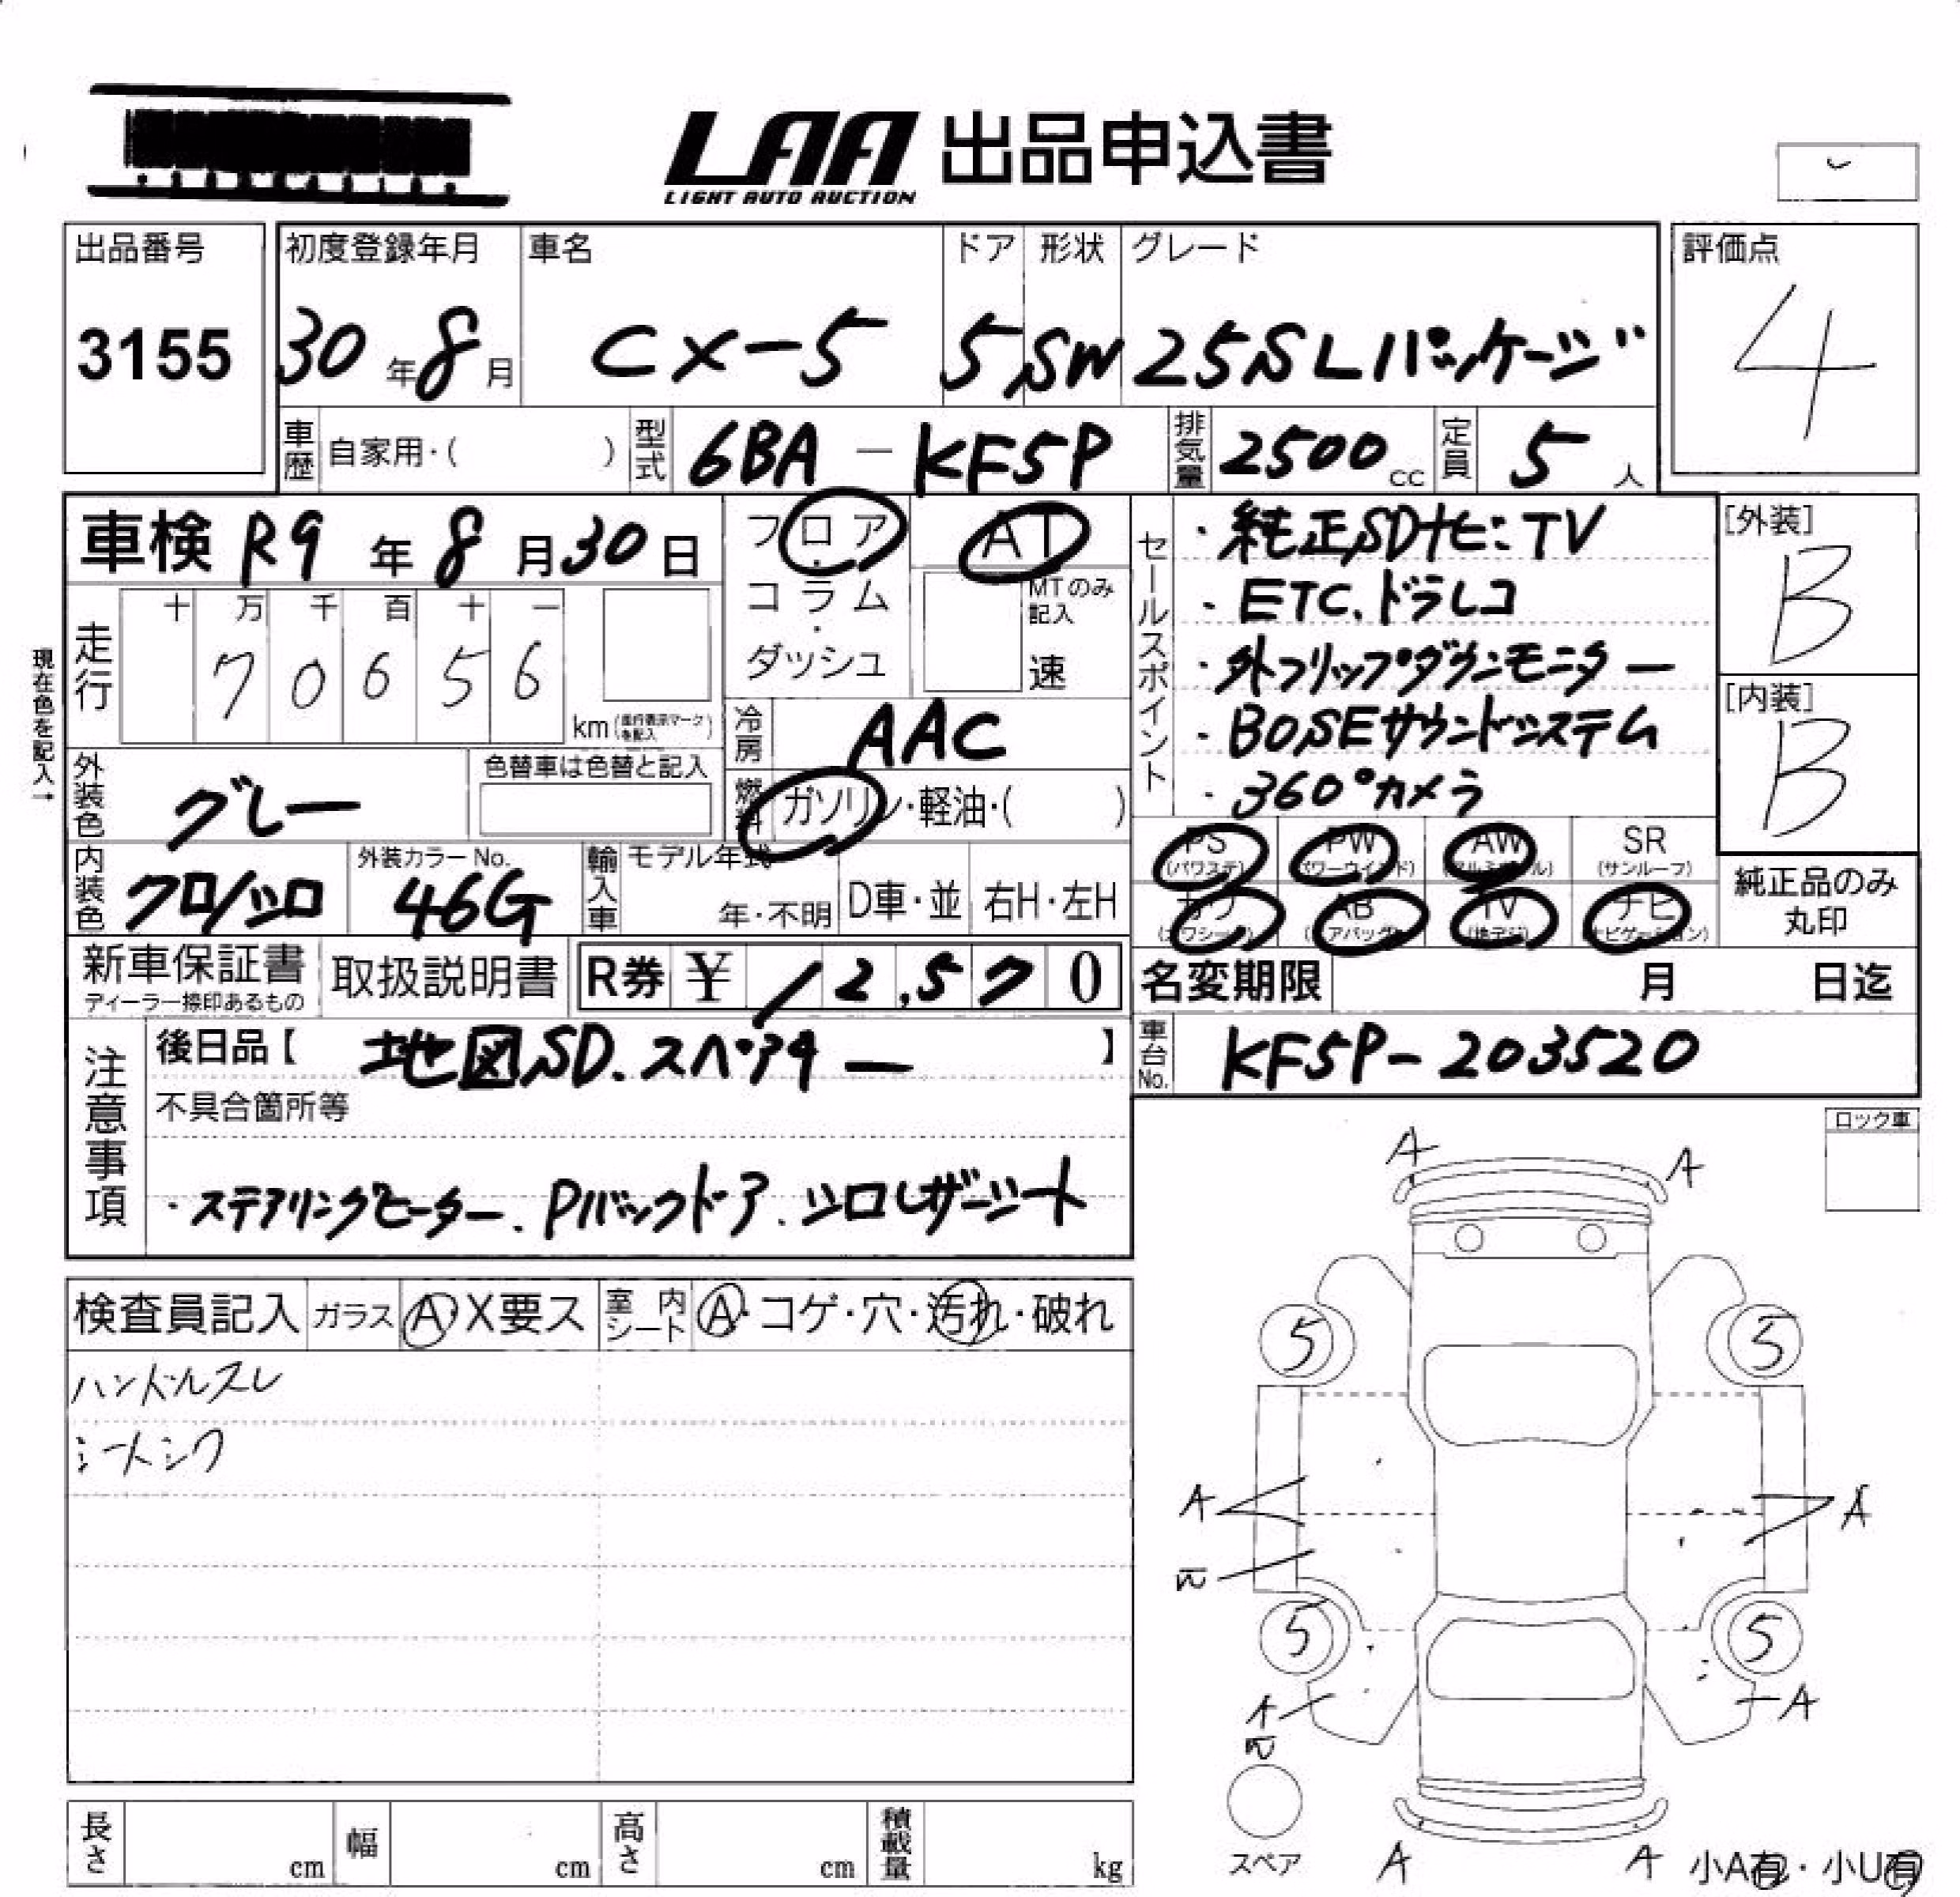 LAA 出品申込書
LIGHT AUTO AUCTION
出品番号 初度登録年月 車名 ドア 形状 グレード 評価点
3155 30年8月 CX-5 5 SW 25S Lパッケージ 4
車歴 自家用・( ) 型式 6BA-KF5P 排気量 2500cc 定員 5人
車検 R9年8月30日
フロア・コラム・ダッシュ
AT
MTのみ記入
速
現在色を記入→
走行 十 万 千 百 十 一
70656
km(走行表示マークを記入)
冷房 AAC
外装色 グレー 色替車は色替と記入
燃料 ガソリン・軽油・( )
内装色 クロ/シロ 外装カラーNo. 46G 輸入車 モデル年式 年・不明 D車・並 右H・左H
セールスポイント
・純正SDナビ:TV
・ETC.ドラレコ
・外フリップダウンモニター
・BOSEサウンドシステム
・360°カメラ
[外装]
B
[内装]
B
PS(パワステ) PW(パワーウインド) AW(アルミホイール) SR(サンルーフ)
カワ(カワシート) AB(エアバッグ) TV(地デジ) ナビ(ナビゲーション)
純正品のみ丸印
新車保証書 ディーラー捺印あるもの 取扱説明書 R券 ¥ 12,570
名変期限 月 日迄
車台No. KF5P-203520
注意事項
後日品【 地図SD.スペアキー 】
不具合箇所等
・ステアリングヒーター.Pバックドア.シロレザーシート
ロック車
検査員記入 ガラス A・X要ス 室内シート A・コゲ・穴・汚れ・破れ
ハンドルスレ
シートシワ
A A
5 5
A A
5 5
A A
スペア A A 小A有・小U有
長さ cm 幅 cm 高さ cm 積載量 kg